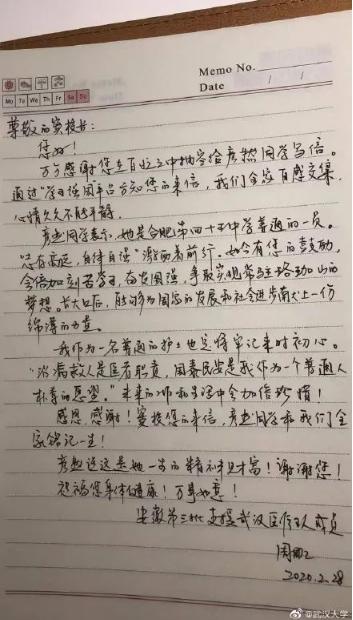 Memo No.
Date / /
Mo Tu We Th Fr Sa Su
尊敬的窦校长:
您好!
万分感谢您在百忙之中抽空给彦然同学写信。
通过"学习强国平台方知您的来信,我们全家百感交集,
心情久久不能平静。
同学表示,她是合肥第四十五中学普通的一员。
自律自强"激励着前行。如今有您的鼓励,
会倍加刻苦学习,奋发图强,争取实现考马路珞珈山的
梦想。长大后,能够为国家的发展和社会进步献上一份
绵薄的力量。
我作为一名普通的护士也定将牢记来时初心。
"治病救人是医者职责,国泰民安是我作为一个普通人
朴素的愿望。"未来的工作和生活中会加倍珍惜!
感恩感谢!窦校您的来信,同学和我们全
家铭记一生!
说这是她一生的精神财富!谢谢您!
祝福您身体健康!万事如意!
安徽第三批支援武汉医疗队队员
周
2020.2.28
@武汉大学